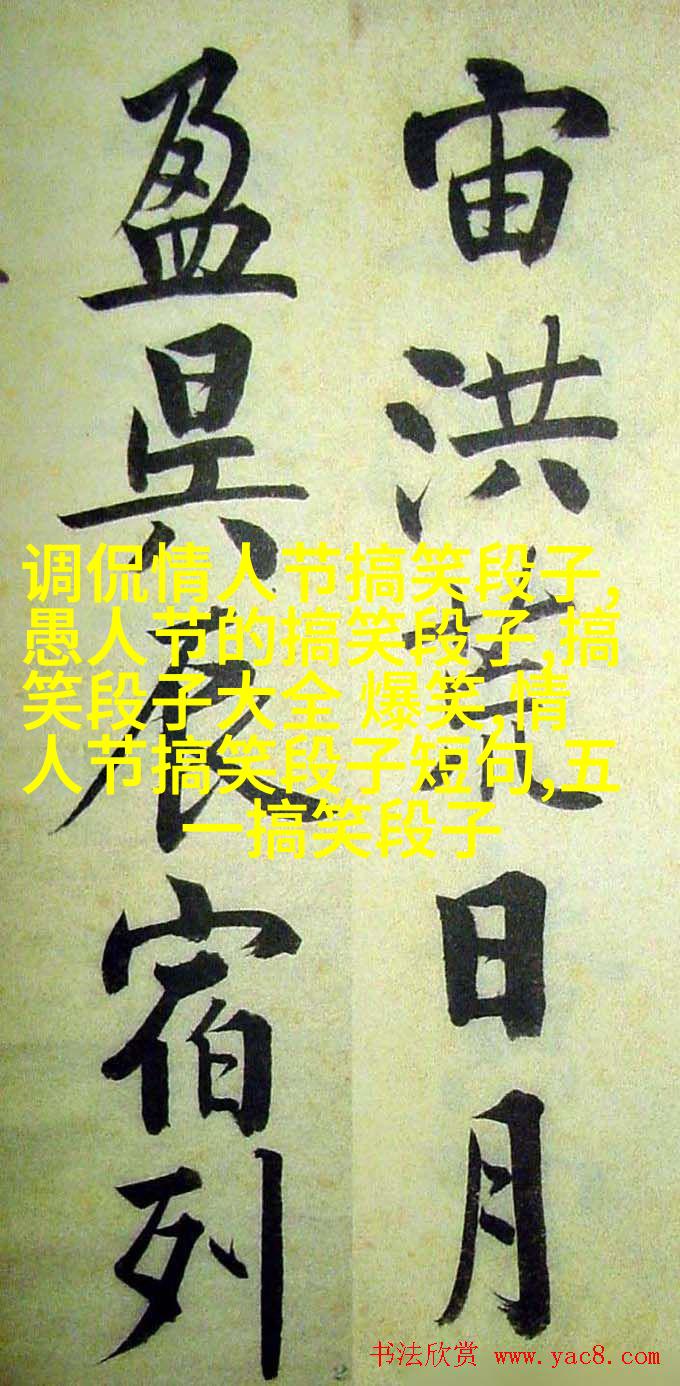 宙洪荒日月
盈昃辰宿列
调侃情人节搞笑段子,
愚人节的搞笑段子,搞
笑段子大全 爆笑,情
人节搞笑段子短句,五
一搞笑段子
书法欣赏 www.yac8.com